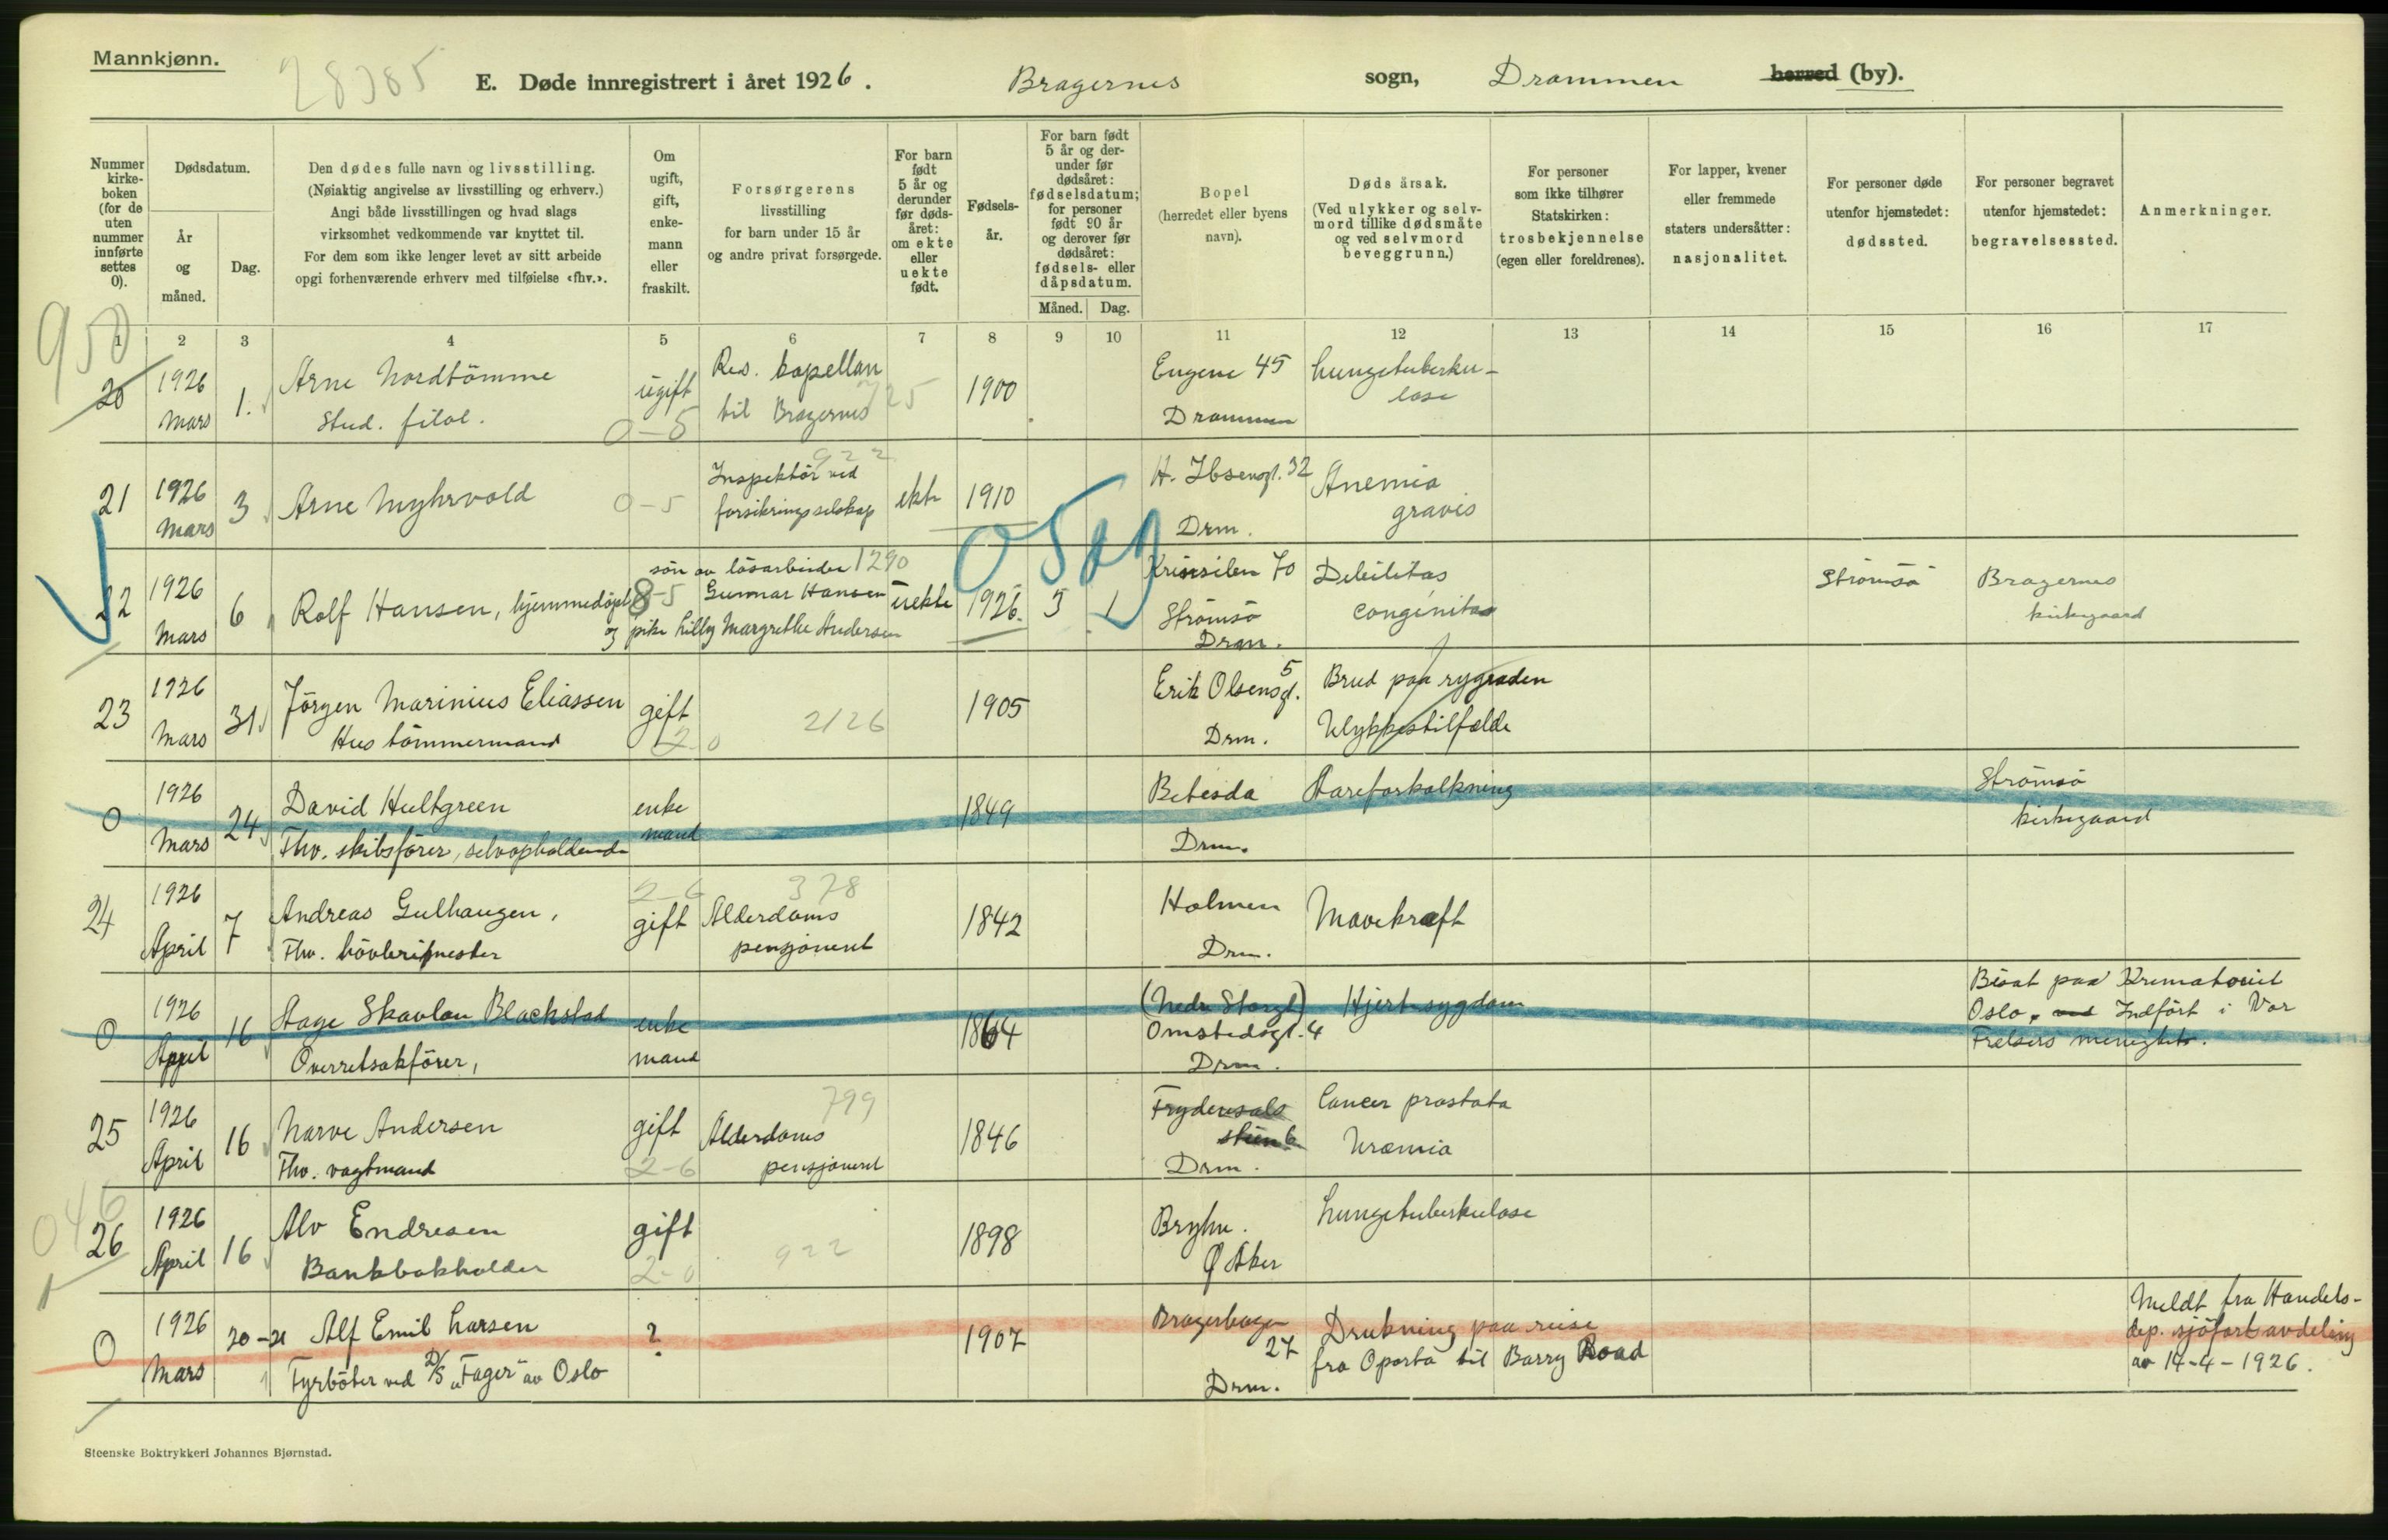 Mannkjønn.
28385
E. Døde innregistrert i året 1926. Bragernes sogn, Drammen herred (by).
Nummer kirkeboken (for de uten nummer innførte settes 0).
Dødsdatum.
År og måned.
Dag.
Den dødes fulle navn og livsstilling.
(Nøiaktig angivelse av livsstilling og erhverv.)
Angi både livsstillingen og hvad slags
virksomhet vedkommende var knyttet til.
For dem som ikke lenger levet av sitt arbeide
opgi forhenværende erhverv med tilføielse «fhv.».
Om ugift, gift, enkemann eller fraskilt.
Forsørgerens
livsstilling
for barn under 15 år
og andre privat forsørgede.
For barn født 5 år og derunder før dødsåret: om ekte eller uekte født.
Fødselsår.
For barn født 5 år og derunder før dødsåret: fødselsdatum; for personer født 90 år og derover før dødsåret: fødsels- eller dåpsdatum.
Måned. Dag.
Bopel
(herredet eller byens
navn).
Døds årsak.
(Ved ulykker og selvmord tillike dødsmåte og ved selvmord beveggrunn.)
For personer
som ikke tilhører
Statskirken:
trosbekjennelse
(egen eller foreldrenes).
For lapper, kvener
eller fremmede
staters undersåtter:
nasjonalitet.
For personer døde
utenfor hjemstedet:
dødssted.
For personer begravet
utenfor hjemstedet:
begravelsessted.
Anmerkninger.
1 2 3 4 5 6 7 8 9 10 11 12 13 14 15 16 17
950
20 1926 Mars 1. Arne Nordtömme
Stud. filol.
ugift 0-5 Res. kapellan
til Bragernes 725
1900 Eugene 45
Drammen
Lungetuberku-
lose
21 1926 Mars 3 Arne Myhrvold 0-5 922
Inspektör ved
forsikringsselskap
ekte 1910 H. Ibsensgt. 32
Drm.
Anemia
gravis
22 1926 Mars 6 Rolf Hansen, hjemmedöpt 8-5
sön av lösarbeider 1290
Gunnar Hansen
og pike Lilly Margrethe Andersen
uekte 1926. 3 1
Strömsö
Dram.
Debilitas
congenitas
Strömsö
Bragernes
kirkegaard
23 1926 Mars 31 Jörgen Marinius Eliassen
Hus tömmermand
gift 2-0 2126 1905 Erik Olsensgt. 5
Drm.
Brud paa rygraden
Ulykkestilfælde
0 1926 Mars 24 David Hultgreen
Fhv. skibsförer, selvopholdende
enke
mand
1849 Betesda
Drm.
Aareforkalkning
Strömsö
kirkegaard
24 1926 April 7 Andreas Gulhaugen,
Fhv. hövlerimester
2-6
gift 378
Alderdoms
pensjonert
1842 Holmen
Drm.
Mavekræft
0 1926 April 16 Aage Skavlan Blackstad
Overretsakförer,
enke
mand
1864 (Nedre Storgt)
Omstedsgt. 4
Drm.
Hjertesygdom
Bisat paa Krematoriet
Oslo, Indfört i Vor
Frelsers menighet.
25 1926 April 16 Narve Andersen
Fhv. vagtmand
gift
2-6 799
Alderdoms
pensjonert
1846
Drm.
Cancer prostata
Uræmia
046
26 1926 April 16 Alv Endresen
Bankbokholder
gift
2-0 922
1898 Bryhn.
Ø Aker
Lungetuberkulose
0 1926 Mars 20-21 Alf Emil Larsen
Fyrböter ved D/S „Fager" av Oslo
? 1907 Bragerhagen
27
Drm.
Drukning paa reise
fra Oporto til Barry Road
Meldt fra Handels-
dep. sjöfartsavdeling
av 14-4-1926.
Steenske Boktrykkeri Johannes Bjørnstad.